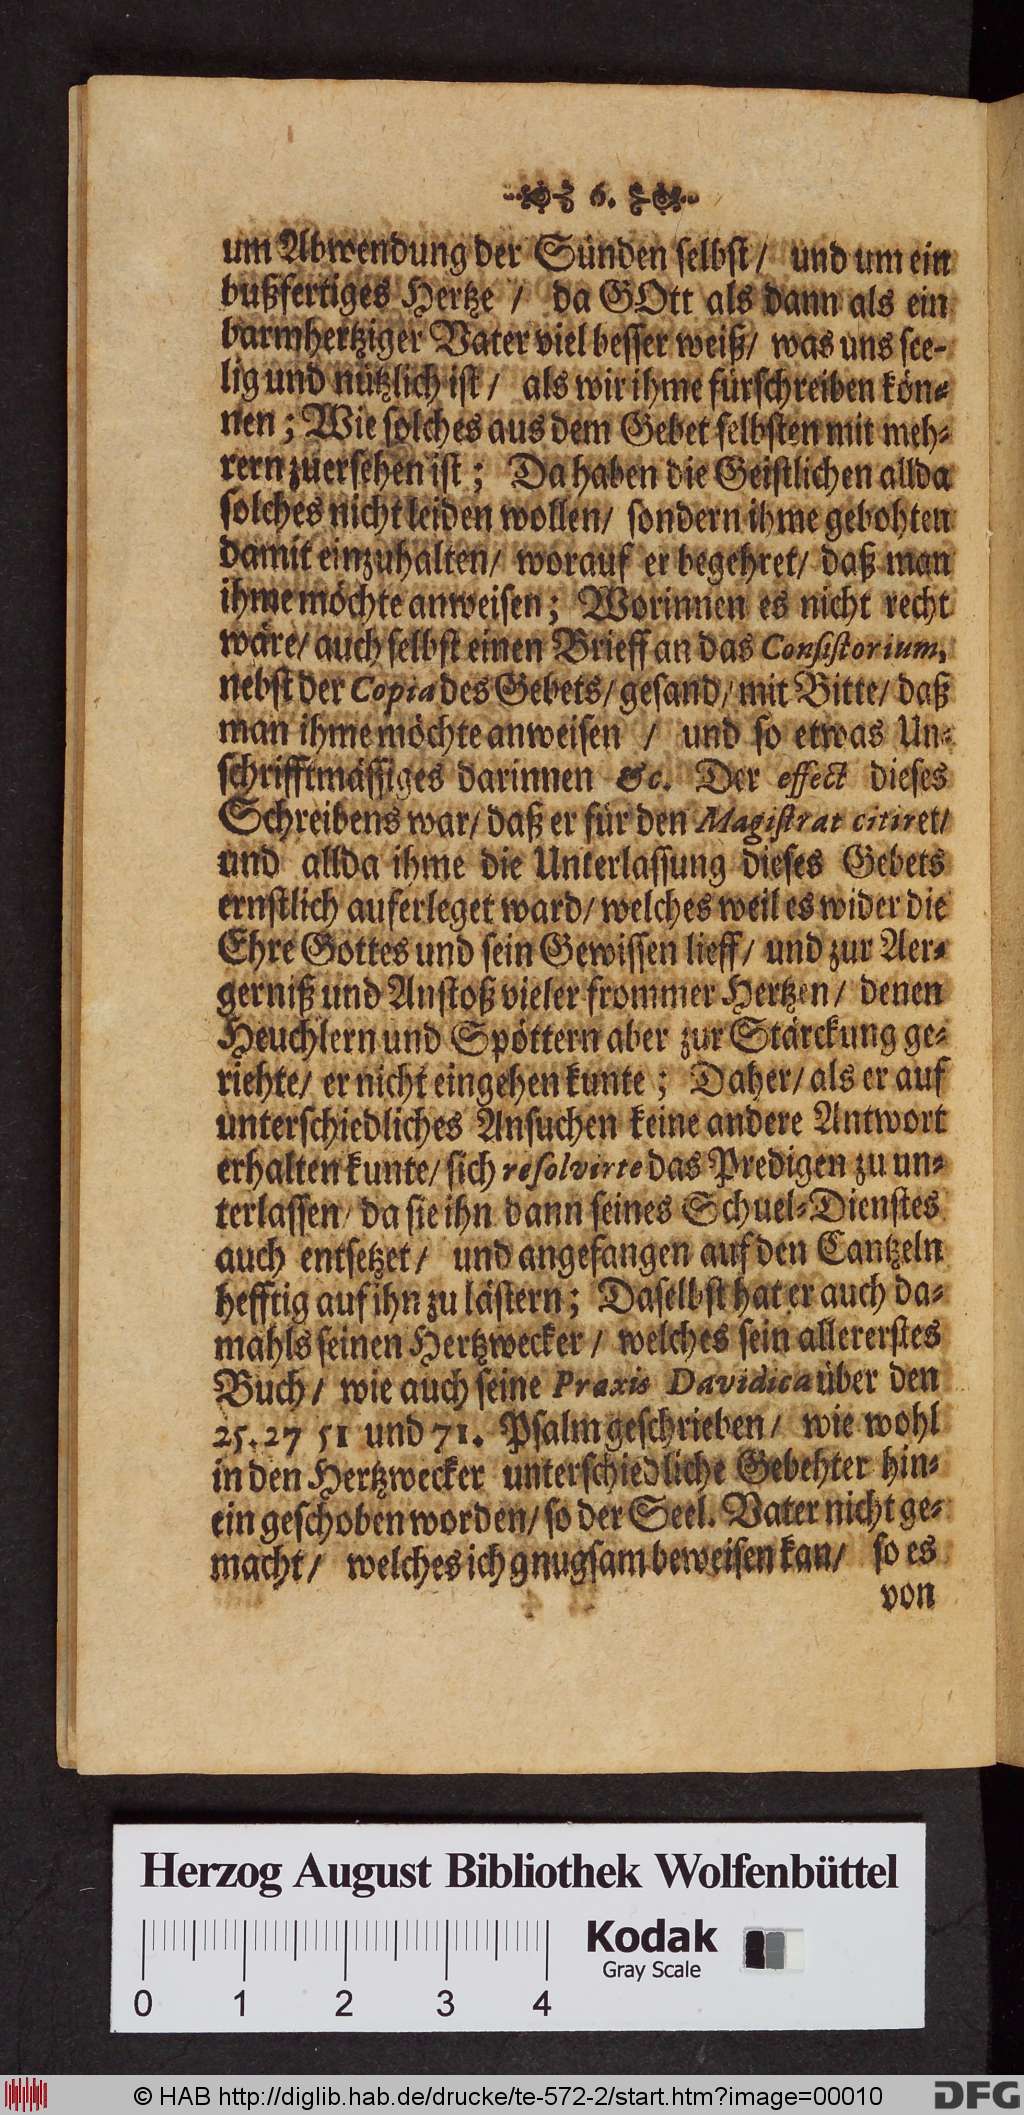 6.
um Abwendung der Sünden selbst/ und um ein
bußfertiges Hertze / da GOtt als dann als ein
barmhertziger Vater viel besser weiß/ was uns see-
lig und nützlich ist/ als wir ihme fürschreiben kön-
nen; Wie solches aus dem Gebet selbsten mit meh-
rern zuersehen ist; Da haben die Geistlichen allda
solches nicht leiden wollen/ sondern ihme gebohten
damit einzuhalten/ worauf er begehret/ daß man
ihme möchte anweisen; Worinnen es nicht recht
wäre/ auch selbst einen Brieff an das Consistorium,
nebst der Copia des Gebets/ gesand/ mit Bitte/ daß
man ihme möchte anweisen / und so etwas Un-
schrifftmässiges darinnen &c. Der effect dieses
Schreibens war/ daß er für den Magistrat citiret/
und allda ihme die Unterlassung dieses Gebets
ernstlich auferleget ward/ welches weil es wider die
Ehre Gottes und sein Gewissen lieff/ und zur Aer-
gerniß und Anstoß vieler frommer Hertzen/ denen
Heuchlern und Spöttern aber zur Stärckung ge-
riehte/ er nicht eingehen kunte; Daher/ als er auf
unterschiedliches Ansuchen keine andere Antwort
erhalten kunte/ sich resolvirte das Predigen zu un-
terlassen/ da sie ihn dann seines Schuel-Dienstes
auch entsetzet/ und angefangen auf den Cantzeln
hefftig auf ihn zu lästern; Daselbst hat er auch da-
mahls seinen Hertzwecker/ welches sein allererstes
Buch/ wie auch seine Praxis Davidica über den
25. 27 51 und 71. Psalm geschrieben/ wie wohl
in den Hertzwecker unterschiedliche Gebehter hin-
ein geschoben worden/ so der Seel. Vater nicht ge-
macht/ welches ich gnugsam beweisen kan/ so es
von
Herzog August Bibliothek Wolfenbüttel
Kodak
Gray Scale
0 1 2 3 4
© HAB http://diglib.hab.de/drucke/te-572-2/start.htm?image=00010
DFG